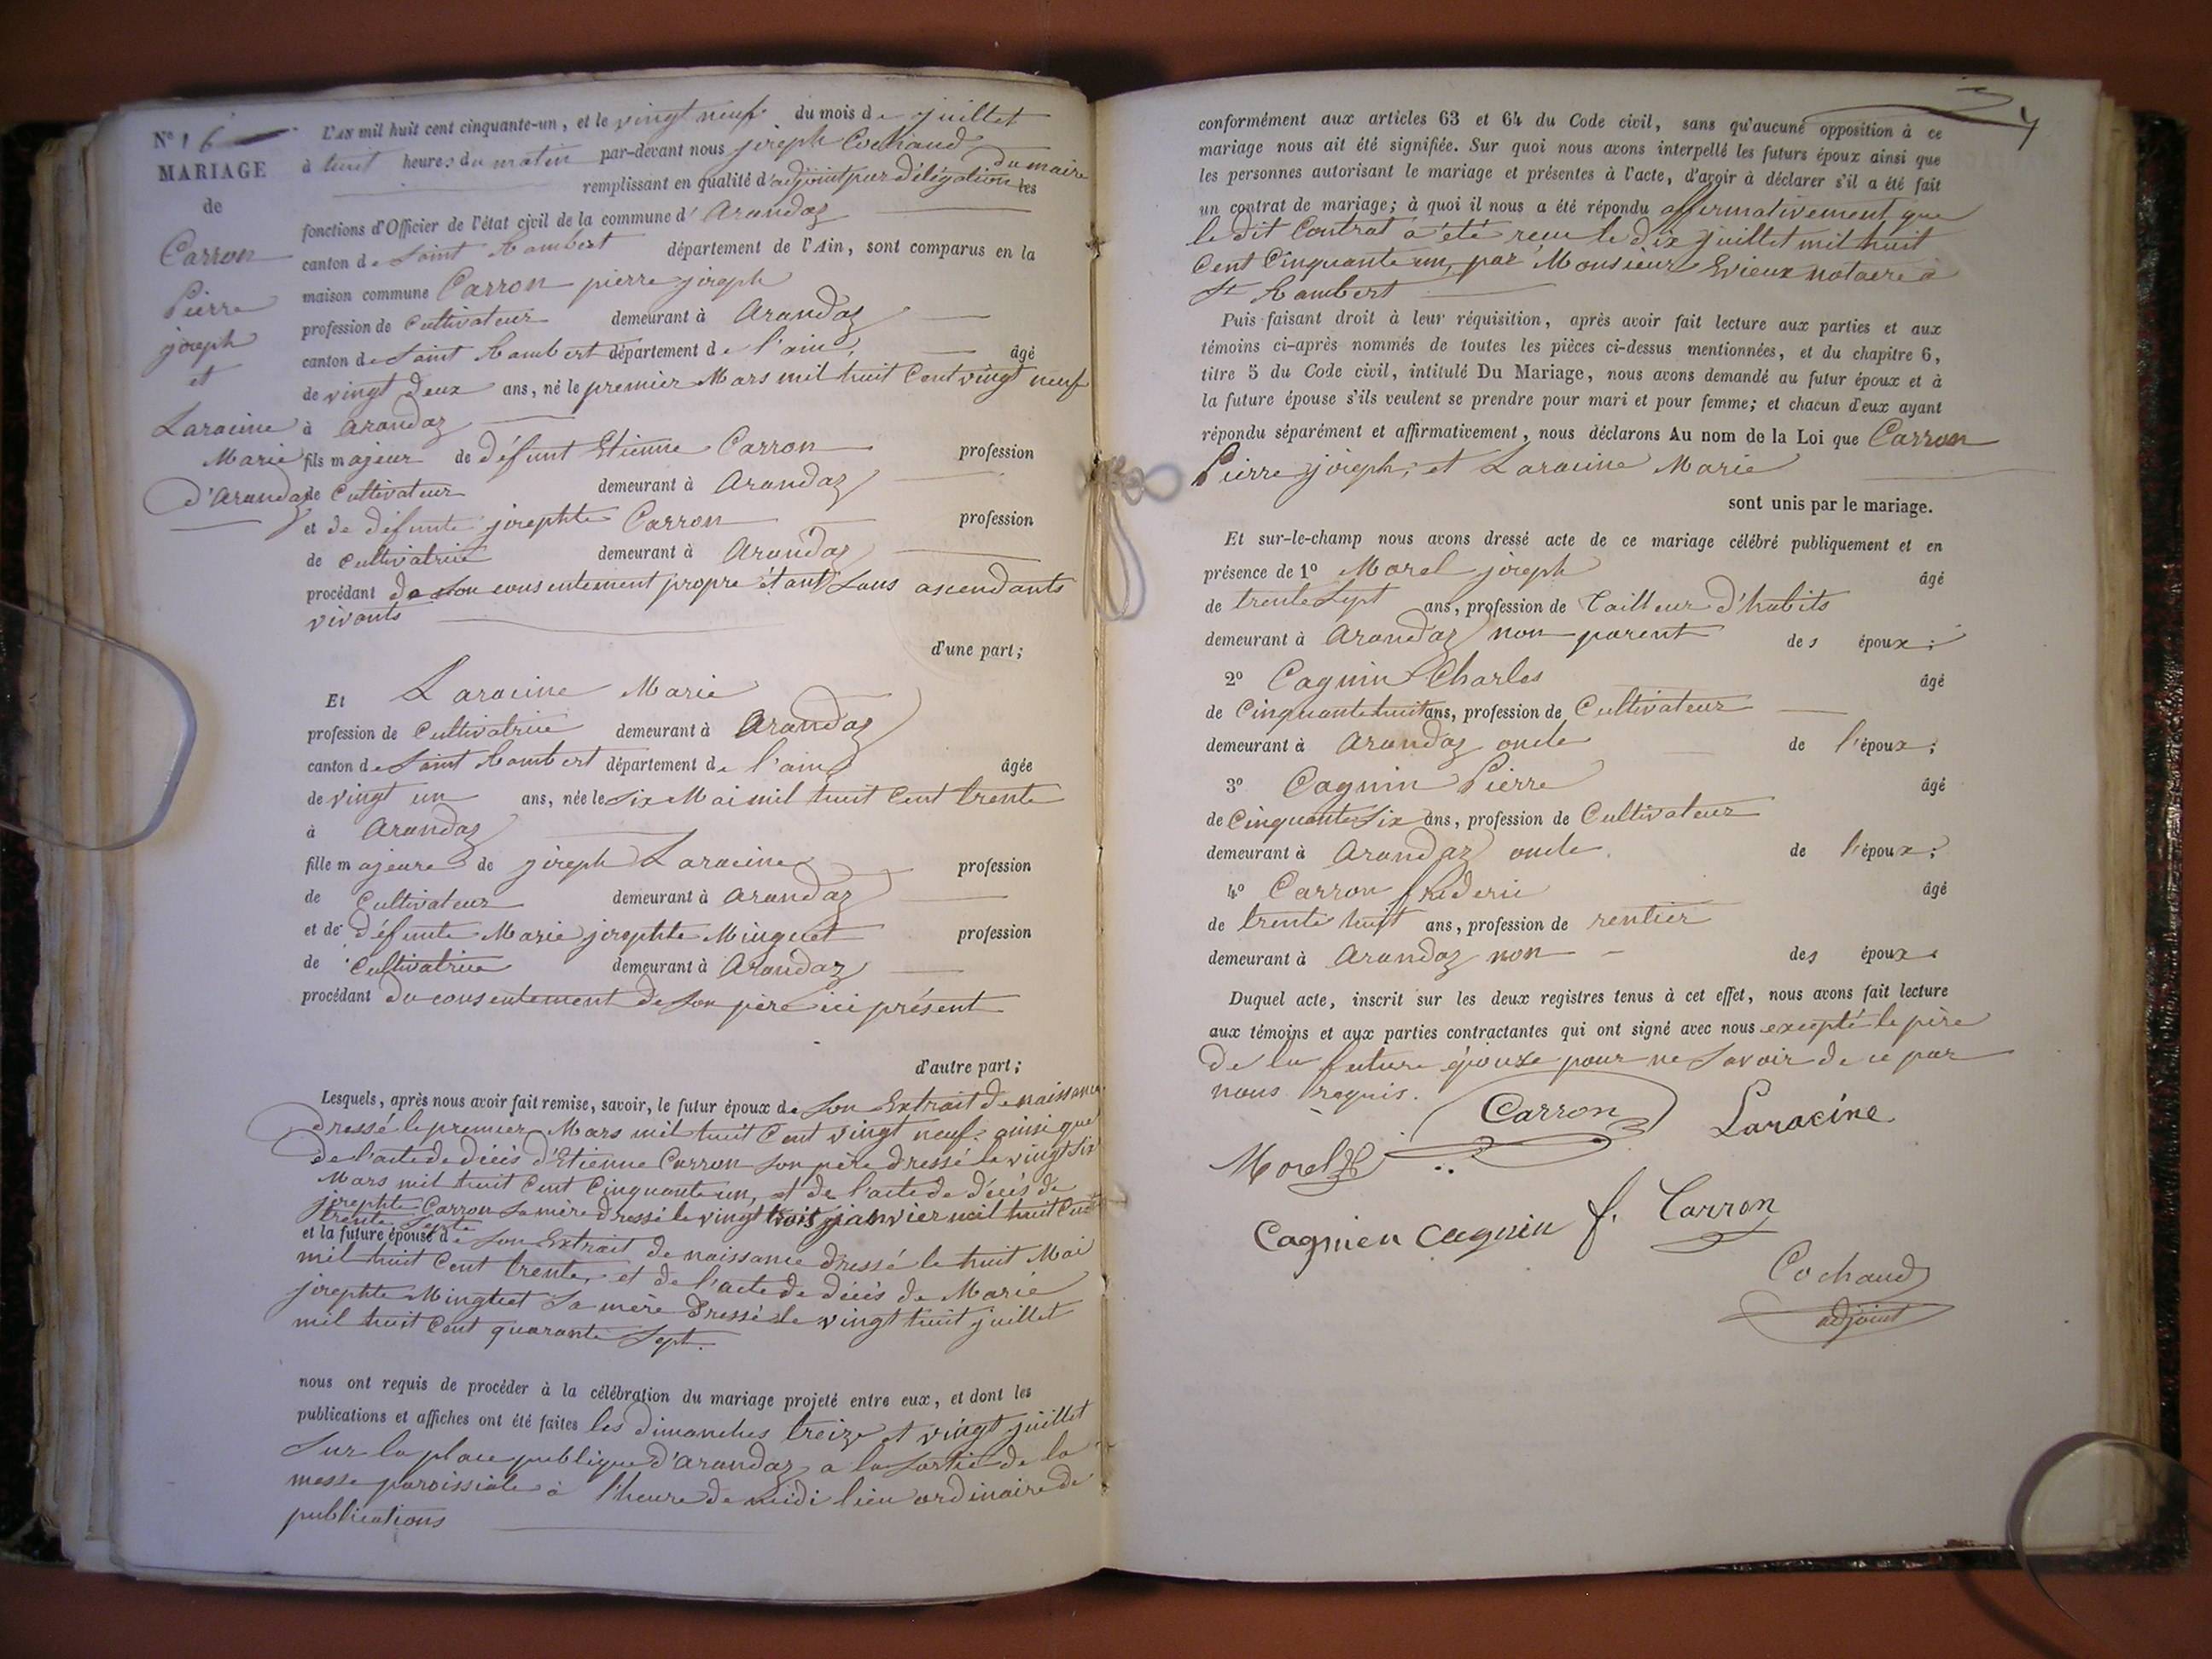 N° 16
MARIAGE
de
Carron
Pierre
joseph
et
Laracine
Marie
d'Arandaz
L'AN mil huit cent cinquante-un, et le vingt neuf du mois de juillet
à huit heures du matin par-devant nous joseph Cochaud
remplissant en qualité d'adjoint par délégation du maire les
fonctions d'Officier de l'état civil de la commune d'Arandaz
canton de Saint Rambert département de l'Ain, sont comparus en la
maison commune Carron pierre joseph
profession de Cultivateur demeurant à Arandaz
canton de Saint Rambert département de l'ain, âgé
de vingt deux ans, né le premier Mars mil huit Cent vingt neuf
à Arandaz
fils majeur de défunt Etienne Carron profession
de Cultivateur demeurant à Arandaz
et de défunte josephte Carron profession
de Cultivatrice demeurant à Arandaz
procédant de son consentement propre étant sans ascendants
vivants
d'une part;
Et Laracine Marie
profession de Cultivatrice demeurant à Arandaz
canton de Saint Rambert département de l'ain âgée
de vingt un ans, née le six Mai mil huit Cent trente
à Arandaz
fille majeure de joseph Laracine profession
de Cultivateur demeurant à Arandaz
et de défunte Marie josephte Minguet profession
de Cultivatrice demeurant à Arandaz
procédant du consentement de son père ici présent
d'autre part;
Lesquels, après nous avoir fait remise, savoir, le futur époux de son Extrait de naissance
dressé le premier Mars mil huit Cent vingt neuf, ainsi que
de l'acte de décès d'Etienne Carron son père dressé le vingt six
Mars mil huit Cent Cinquante un, et de l'acte de décès de
josephte Carron sa mère dressé le vingt trois janvier mil huit Cent
trente sept
et la future épouse de son Extrait de naissance dressé le huit Mai
mil huit Cent trente, et de l'acte de décès de Marie
josephte Minguet sa mère dressé le vingt huit juillet
mil huit Cent quarante sept.
nous ont requis de procéder à la célébration du mariage projeté entre eux, et dont les
publications et affiches ont été faites les dimanches treize et vingt juillet
sur la place publique d'Arandaz, a la sortie de la
messe paroissiale à l'heure de midi lieu ordinaire de
publications
conformément aux articles 63 et 64 du Code civil, sans qu'aucune opposition à ce
mariage nous ait été signifiée. Sur quoi nous avons interpellé les futurs époux ainsi que
les personnes autorisant le mariage et présentes à l'acte, d'avoir à déclarer s'il a été fait
un contrat de mariage; à quoi il nous a été répondu affirmativement que
le dit Contrat a été reçu le dix juillet mil huit
Cent Cinquante un, par Monsieur Evieux notaire à
St Rambert
Puis faisant droit à leur réquisition, après avoir fait lecture aux parties et aux
témoins ci-après nommés de toutes les pièces ci-dessus mentionnées, et du chapitre 6,
titre 5 du Code civil, intitulé Du Mariage, nous avons demandé au futur époux et à
la future épouse s'ils veulent se prendre pour mari et pour femme; et chacun d'eux ayant
répondu séparément et affirmativement, nous déclarons Au nom de la Loi que Carron
Pierre joseph, et Laracine Marie
sont unis par le mariage.
Et sur-le-champ nous avons dressé acte de ce mariage célébré publiquement et en
présence de 1° Morel joseph âgé
de trente sept ans, profession de Tailleur d'habits
demeurant à Arandaz non parent des époux;
2° Cagnin Charles âgé
de Cinquante huit ans, profession de Cultivateur
demeurant à Arandaz oncle de l'époux;
3° Cagnin Pierre âgé
de Cinquante six ans, profession de Cultivateur
demeurant à Arandaz oncle de l'époux;
4° Carron frédéric âgé
de trente huit ans, profession de rentier
demeurant à Arandaz non des époux.
Duquel acte, inscrit sur les deux registres tenus à cet effet, nous avons fait lecture
aux témoins et aux parties contractantes qui ont signé avec nous excepté le père
de la future épouse pour ne savoir de ce par
nous requis.
Carron Laracine
Morel
Cagnien Cagnin f. Carron
Cochaud
adjoint